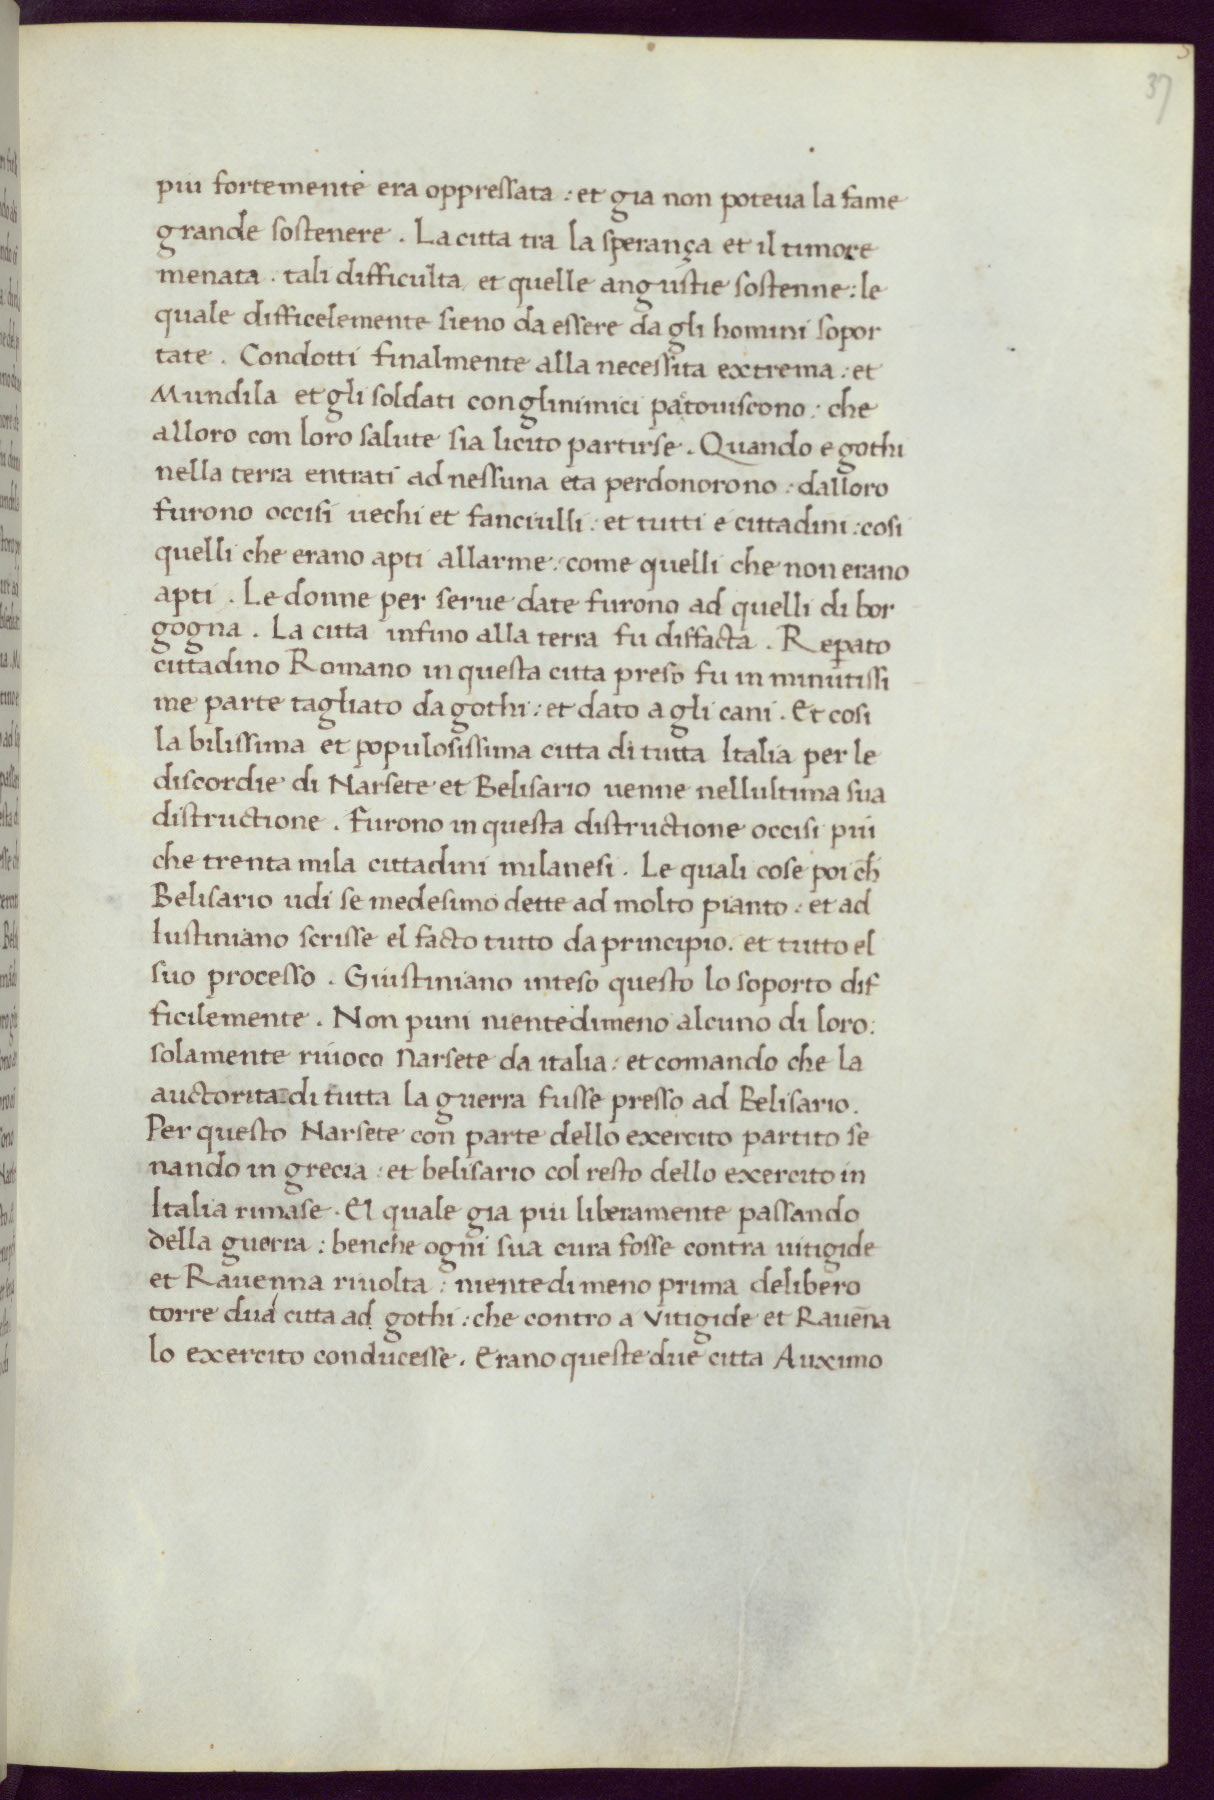 37
piu fortemente era oppressata : et gia non poteua la fame
grande sostenere . La citta tra la sperança et il timore
menata . tali difficulta et quelle angustie sostenne : le
quale difficelemente sieno da essere da gli homini sopor
tate . Condotti finalmente alla necessita extrema : et
Mundila et gli soldati con glinimici patouiscono : che
alloro con loro salute sia licito partirse . Quando e gothi
nella terra entrati ad nessuna eta perdonorono : dalloro
furono occisi uechi et fanciulli : et tutti e cittadini : cosi
quelli che erano apti allarme : come quelli che non erano
apti . Le donne per serue date furono ad quelli di bor
gogna . La citta infino alla terra fu disfacta . Reparato
cittadino Romano in questa citta preso fu in minutissi
me parte tagliato da gothi : et dato a gli cani . Et cosi
la bilissima et populosissima citta di tutta Italia per le
discordie di Narsete et Belisario uenne nellultima sua
distructione . Furono in questa distructione occisi piu
che trenta mila cittadini milanesi . Le quali cose poi ch
Belisario udi se medesimo dette ad molto pianto : et ad
Iustiniano scrisse el facto tutto da principio . et tutto el
suo processo . Giustiniano inteso questo lo soporto dif
ficilemente . Non puni nientedimeno alcuno di loro :
solamente riuoco Narsete da italia : et comando che la
auctorita di tutta la guerra fusse presso ad Belisario .
Per questo Narsete con parte dello exercito partito se
nando in grecia : et belisario col resto dello exercito in
Italia rimase . El quale gia piu liberamente passando
della guerra : benche ogni sua cura fosse contra uitigide
et Rauenna riuolta : nientedimeno prima delibero
torre dua citta ad gothi : che contro a Vitigide et Rauen̄a
lo exercito conducesse . Erano queste due citta Auximo